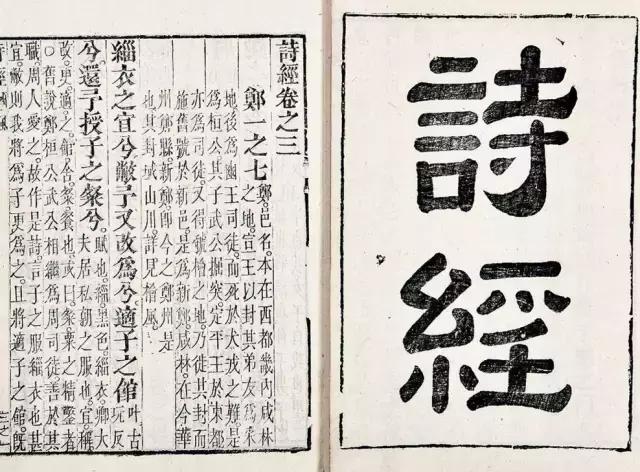 詩
經
詩經卷之三
鄭一之七 鄭。邑名。本在西都畿內咸林
之地。宣王以封其弟友爲采
地。後爲幽王司徒。而死於犬戎之難。是
爲桓公。其子武公掘突。定平王於東都。
亦爲司徒。又得虢檜之地。乃徙其封。而
施舊號於新邑。是爲新鄭。咸林。在今華
州鄭縣。新鄭。即今之鄭州是
也。其封域山川。詳見檜風。
緇衣之宜兮。敝予又改爲兮。適子之館 叶古
玩反
兮。還予授子之粲兮。 賦也。緇。黑色。緇衣。卿大
夫居私朝之服也。宜。稱
改。更。適。之。館。舍。粲。餐也。或曰。粲。粟之精鑿者。
○舊說鄭桓公武公相繼爲周司徒。善於其
職。周人愛之。故作是詩。言子之服緇衣也甚
宜。敝則我將爲子更爲之。且將適子之館。旣
詩經 國風